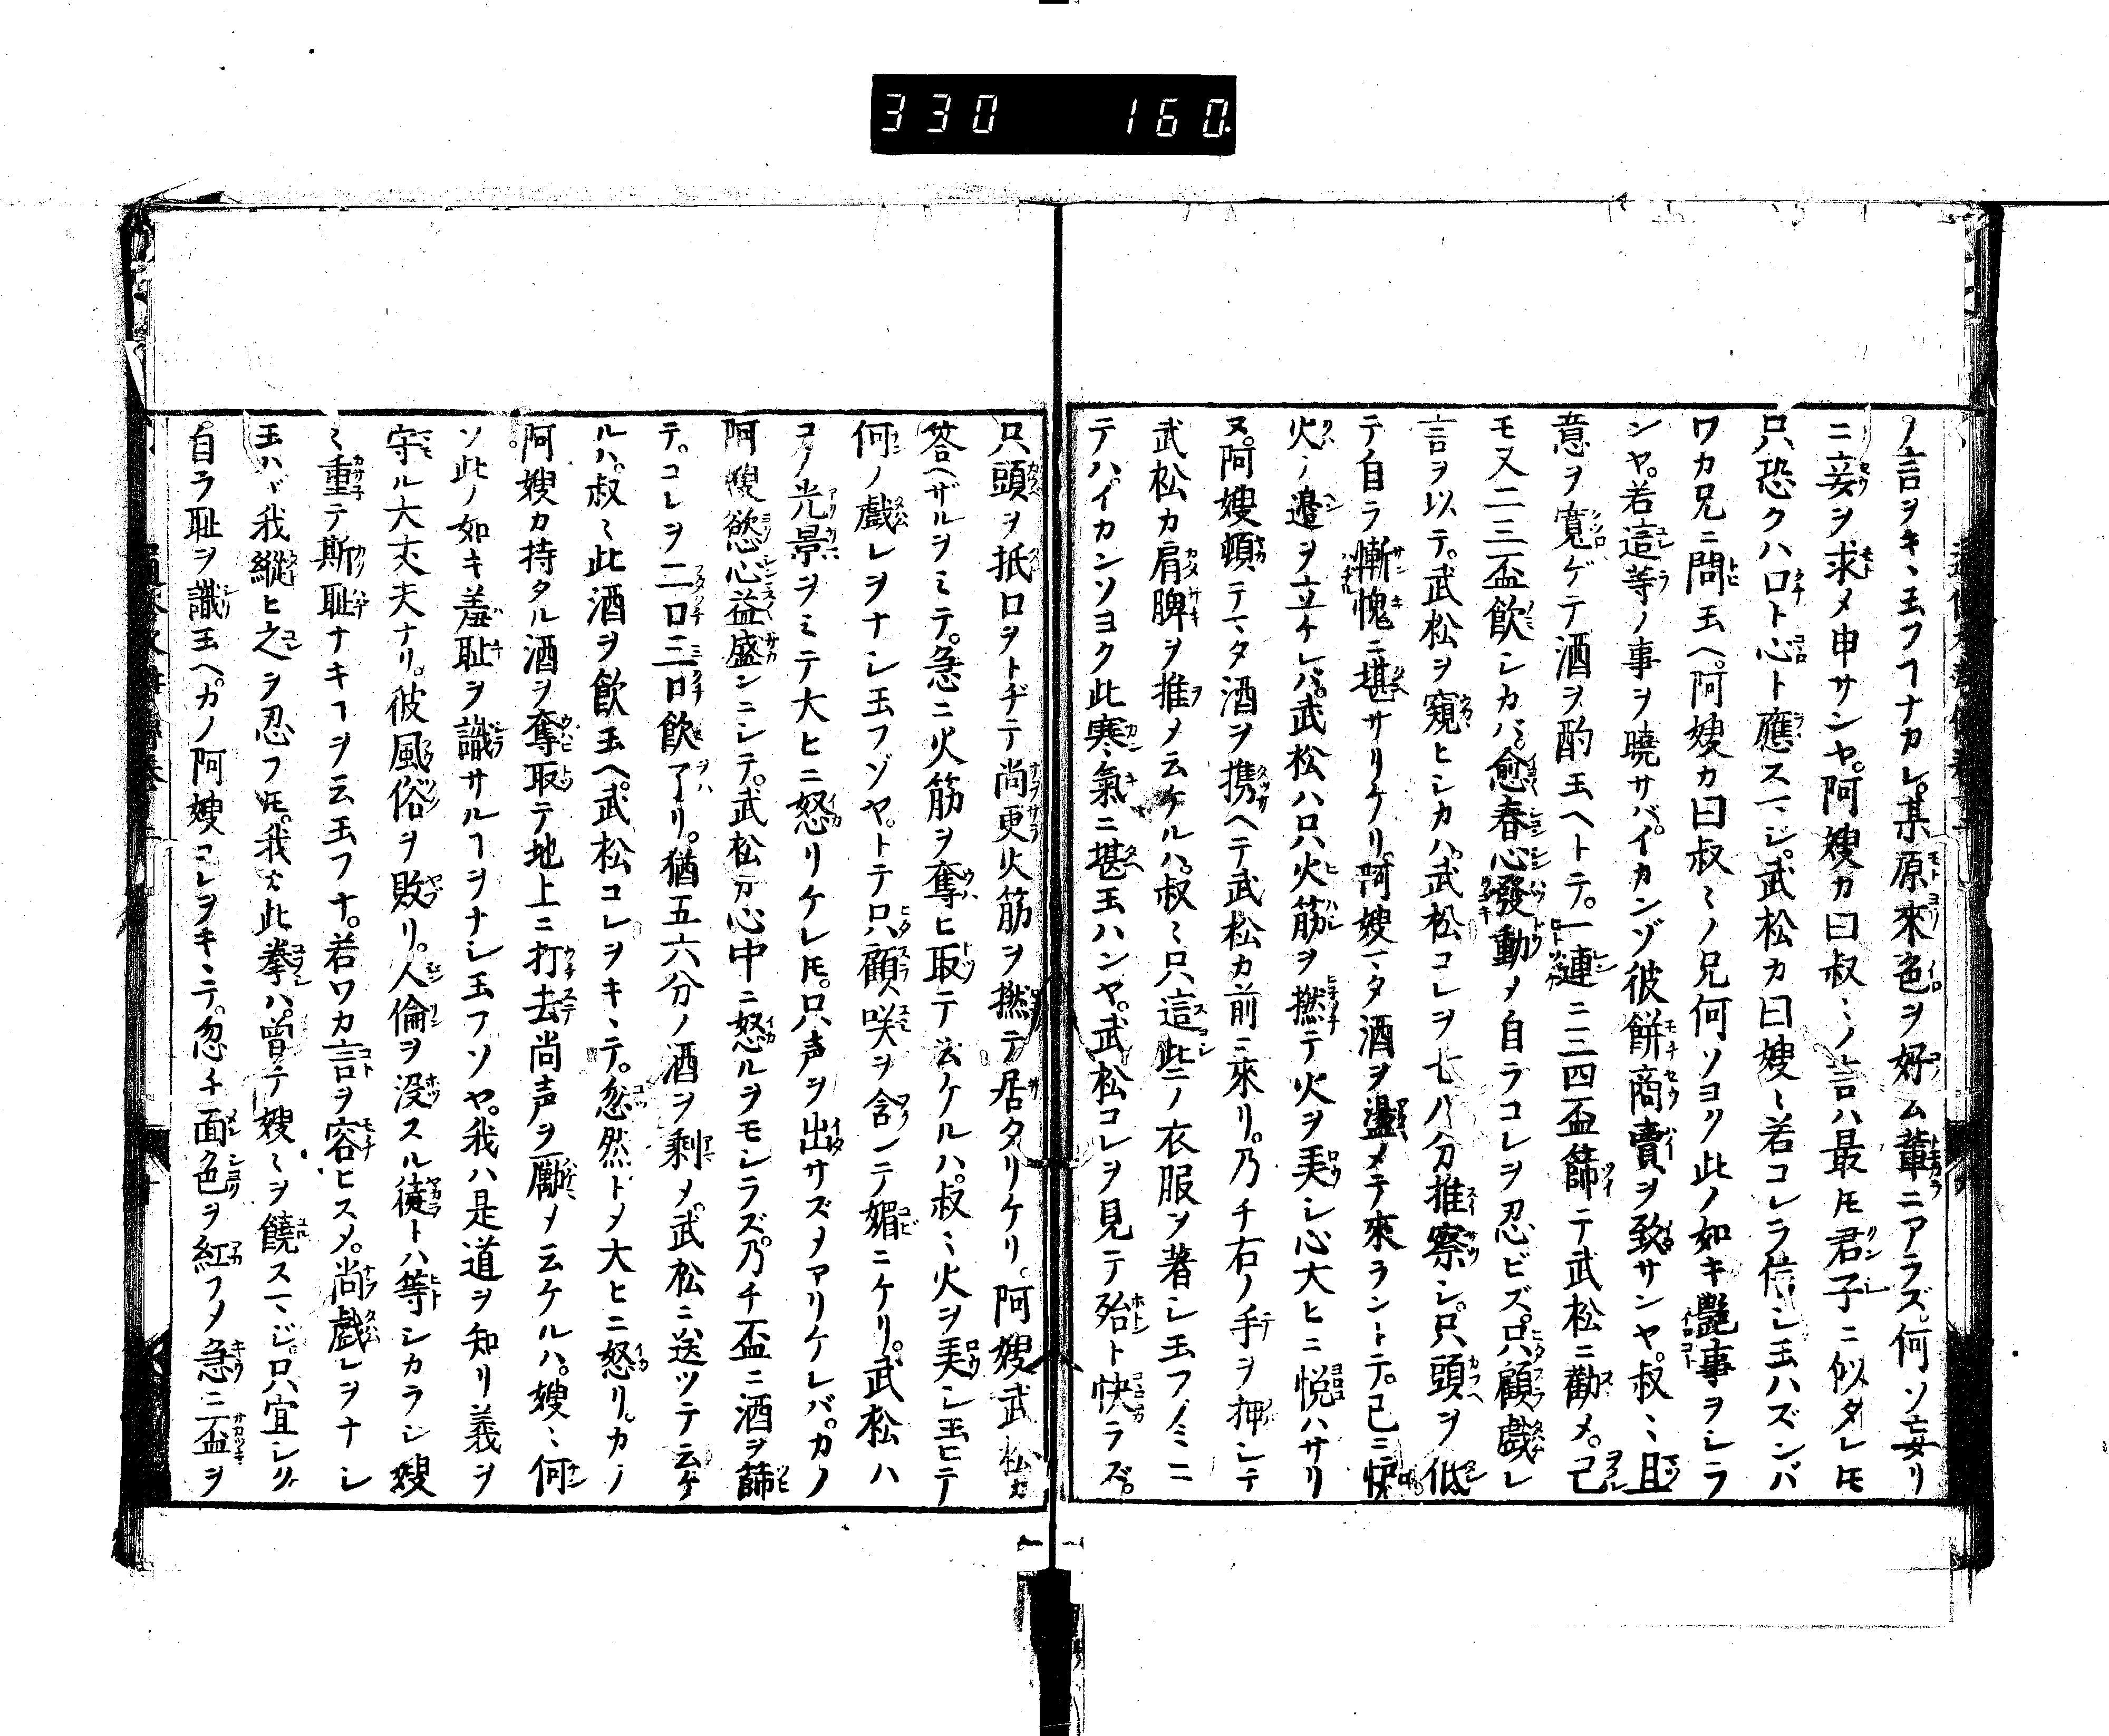 330 160
ノ言ヲキヽ玉フヿナカレ。某原來色ヲ好ム輩ニアラズ。何ソ妄リ
ニ妾ヲ求メ申サンヤ。阿嫂カ曰叔〻ノ言ハ最モ君子ニ似タレ𪜈
只恐クハ口ト心ト應スマジ。武松カ曰嫂〻若コレラ信シ玉ハズンバ
ワカ兄ニ問玉ヘ。阿嫂カ曰叔〻ノ兄何ソヨク此ノ如キ艶事ヲシラ
ンヤ。若這等ノ事ヲ曉サバ。イカンゾ彼餅商賣ヲ致サンヤ。叔〻且
意ヲ寛ゲテ酒ヲ酌玉ヘトテ。一連ニ三四盃篩テ武松ニ勸メ。己
モ又二三盃飲シカバ。愈春心發動メ自ラコレヲ忍ビズ。只顧戯レ
言ヲ以テ。武松ヲ窺ヒシカハ。武松コレヲ七八分推察シ。只頭ヲ低
テ自ラ慚愧ニ堪サリケリ。阿嫂マタ酒ヲ盪メテ來ラントテ。己ニ
火ノ邉ヲ立ケレバ。武松ハ只火筋ヲ撚テ火ヲ美シ心大ヒニ悦ハサリ
ヌ。阿嫂頓テマタ酒ヲ携ヘテ武松カ前ニ來リ。乃チ右ノ手ヲ押シテ
武松カ肩脾ヲ推メ云ケルハ。叔〻只這些ノ衣服ヲ著シ玉フノミニ
テハ。イカンソヨク此寒氣ニ堪玉ハンヤ。武松コレヲ見テ殆ト快ラズ。
只頭ヲ抵ロヲトヂテ尚更火筋ヲ撚テ居タリケリ。阿嫂武松カ
答ヘザルヲミテ。急ニ火筋ヲ奪ヒ取テ云ケルハ。叔〻火ヲ美シ玉ヒテ
何ノ戯レヲナシ玉フゾヤ。トテ只顧咲ヲ含ンテ媚ニケリ。武松ハ
コノ光景ヲミテ大ヒニ怒リケレ𪜈。只声ヲ出サズメアリケレバ。カノ
阿嫂慾心益盛ンニシテ。武松カ心中ニ怒ルヲモシラズ。乃チ一盃ニ酒ヲ篩
テ。コレヲ二口三口飲了リ。猶五六分ノ酒ヲ剩メ。武松ニ送ツテ云ケ
ルハ。叔〻此酒ヲ飲玉ヘ。武松コレヲキヽテ。忽然トメ大ヒニ怒リ。カノ
阿嫂カ持タル酒ヲ奪取テ地上ニ打去尚声ヲ勵メ云ケルハ。嫂〻何
ソ此ノ如キ羞耻ヲ識サルヿヲナシ玉フソヤ。我ハ是道ヲ知リ義ヲ
守ル大丈夫ナリ。彼風俗ヲ敗リ。人倫ヲ没スル徒トハ等シカラシ嫂
〻重テ斯耻ナキヿヲ云玉フナ。若ワカ言ヲ容ヒスメ。尚戯レヲナシ
玉ハヾ我縱ヒ之ヲ忍フ𪜈。我カ此拳ハ。曾テ嫂〻ヲ饒スマジ。只宜シク
自ラ耻ヲ識玉ヘ。カノ阿嫂コレヲキヽテ。忽チ面色ヲ紅フメ急ニ盃ヲ